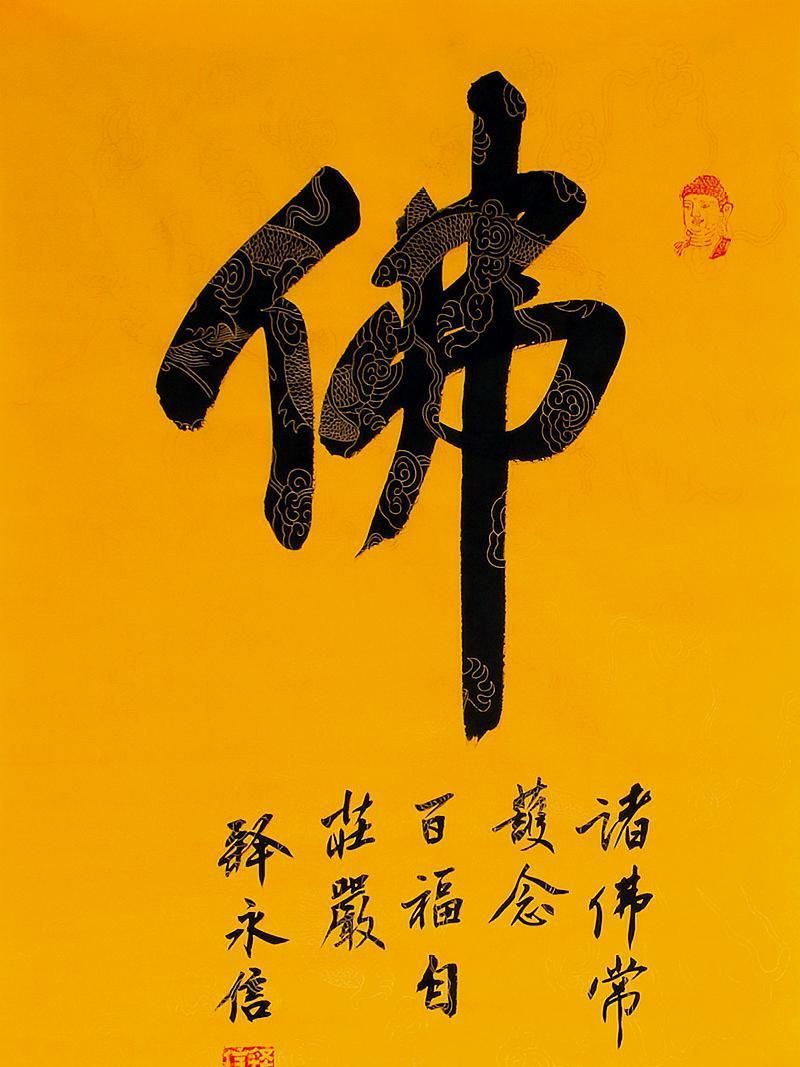 佛
諸佛常
護念
百福自
莊嚴
釋永信